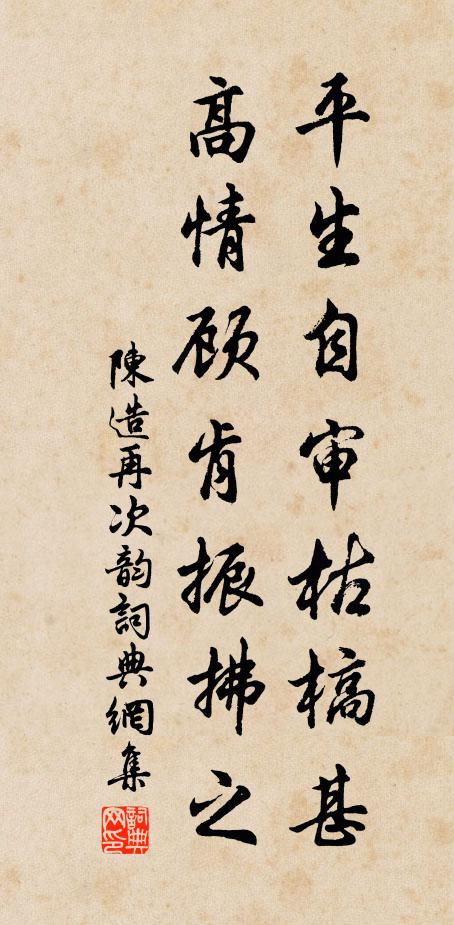 平生自审枯槁甚
高情顾肯振拂之
陳造再次韵詞典網集
詞典網印